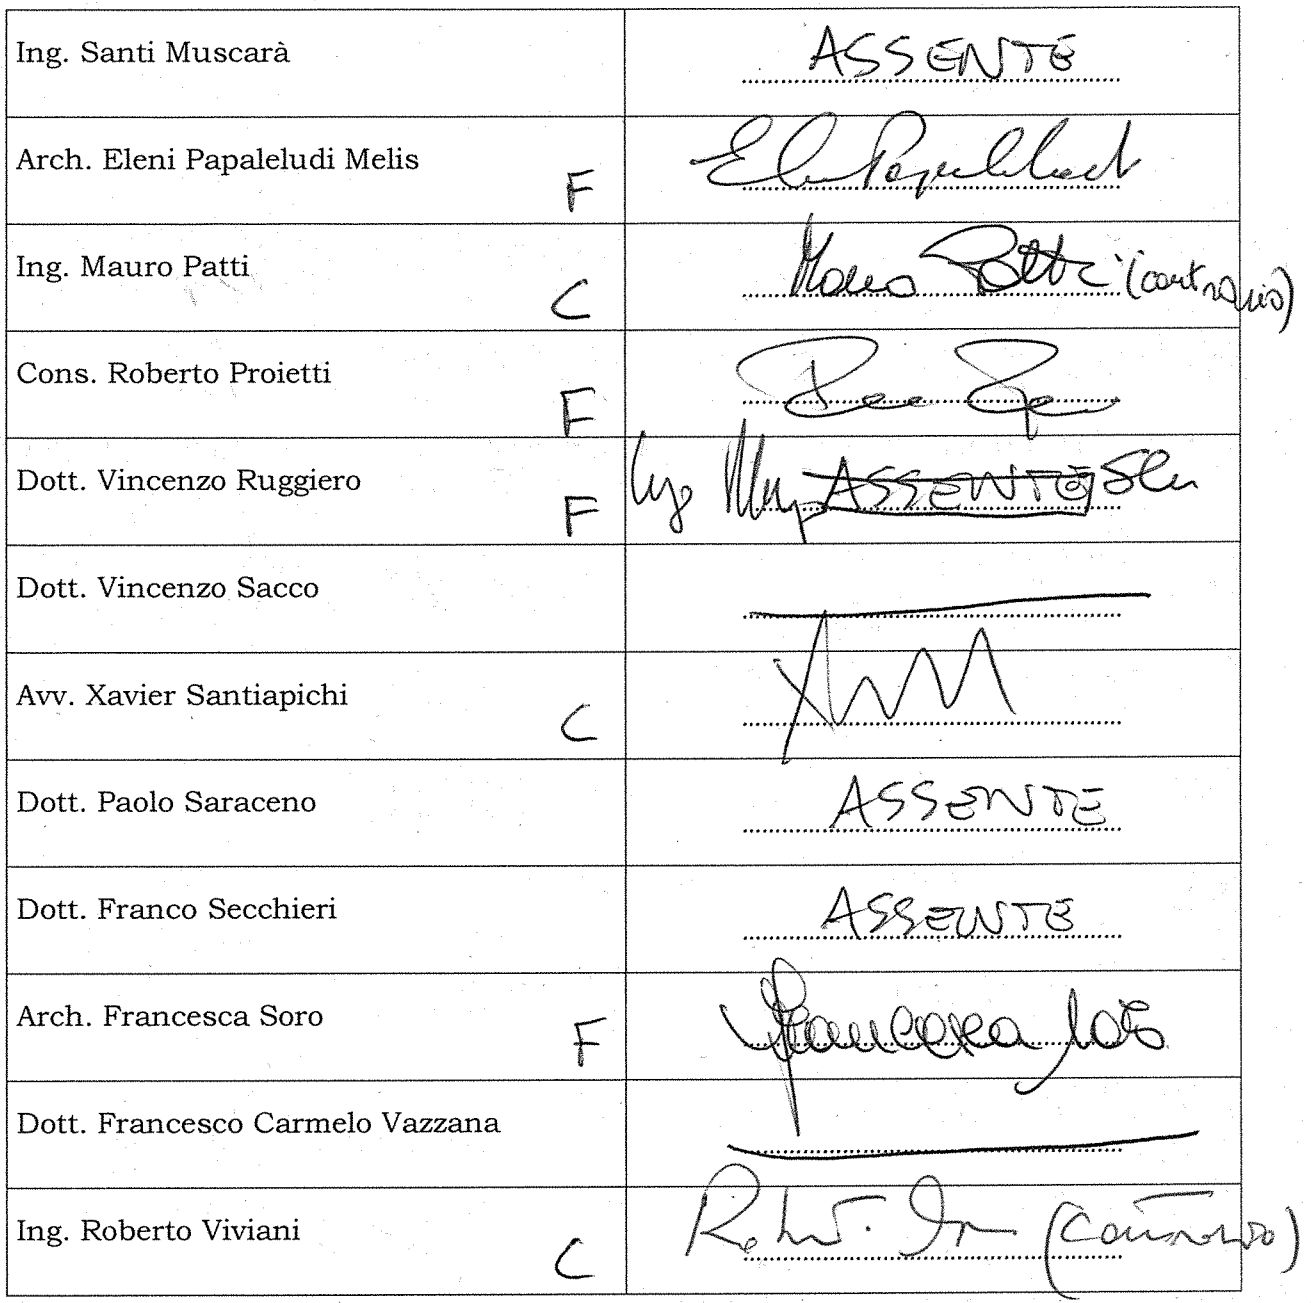 Ing. Santi Muscarà ASSENTE
Arch. Eleni Papaleludi Melis F
Ing. Mauro Patti C Mauro Patti (contrario)
Cons. Roberto Proietti F
Dott. Vincenzo Ruggiero F ASSENTE
Dott. Vincenzo Sacco
Avv. Xavier Santiapichi C
Dott. Paolo Saraceno ASSENTE
Dott. Franco Secchieri ASSENTE
Arch. Francesca Soro F Francesca Soro
Dott. Francesco Carmelo Vazzana
Ing. Roberto Viviani C (contrario)